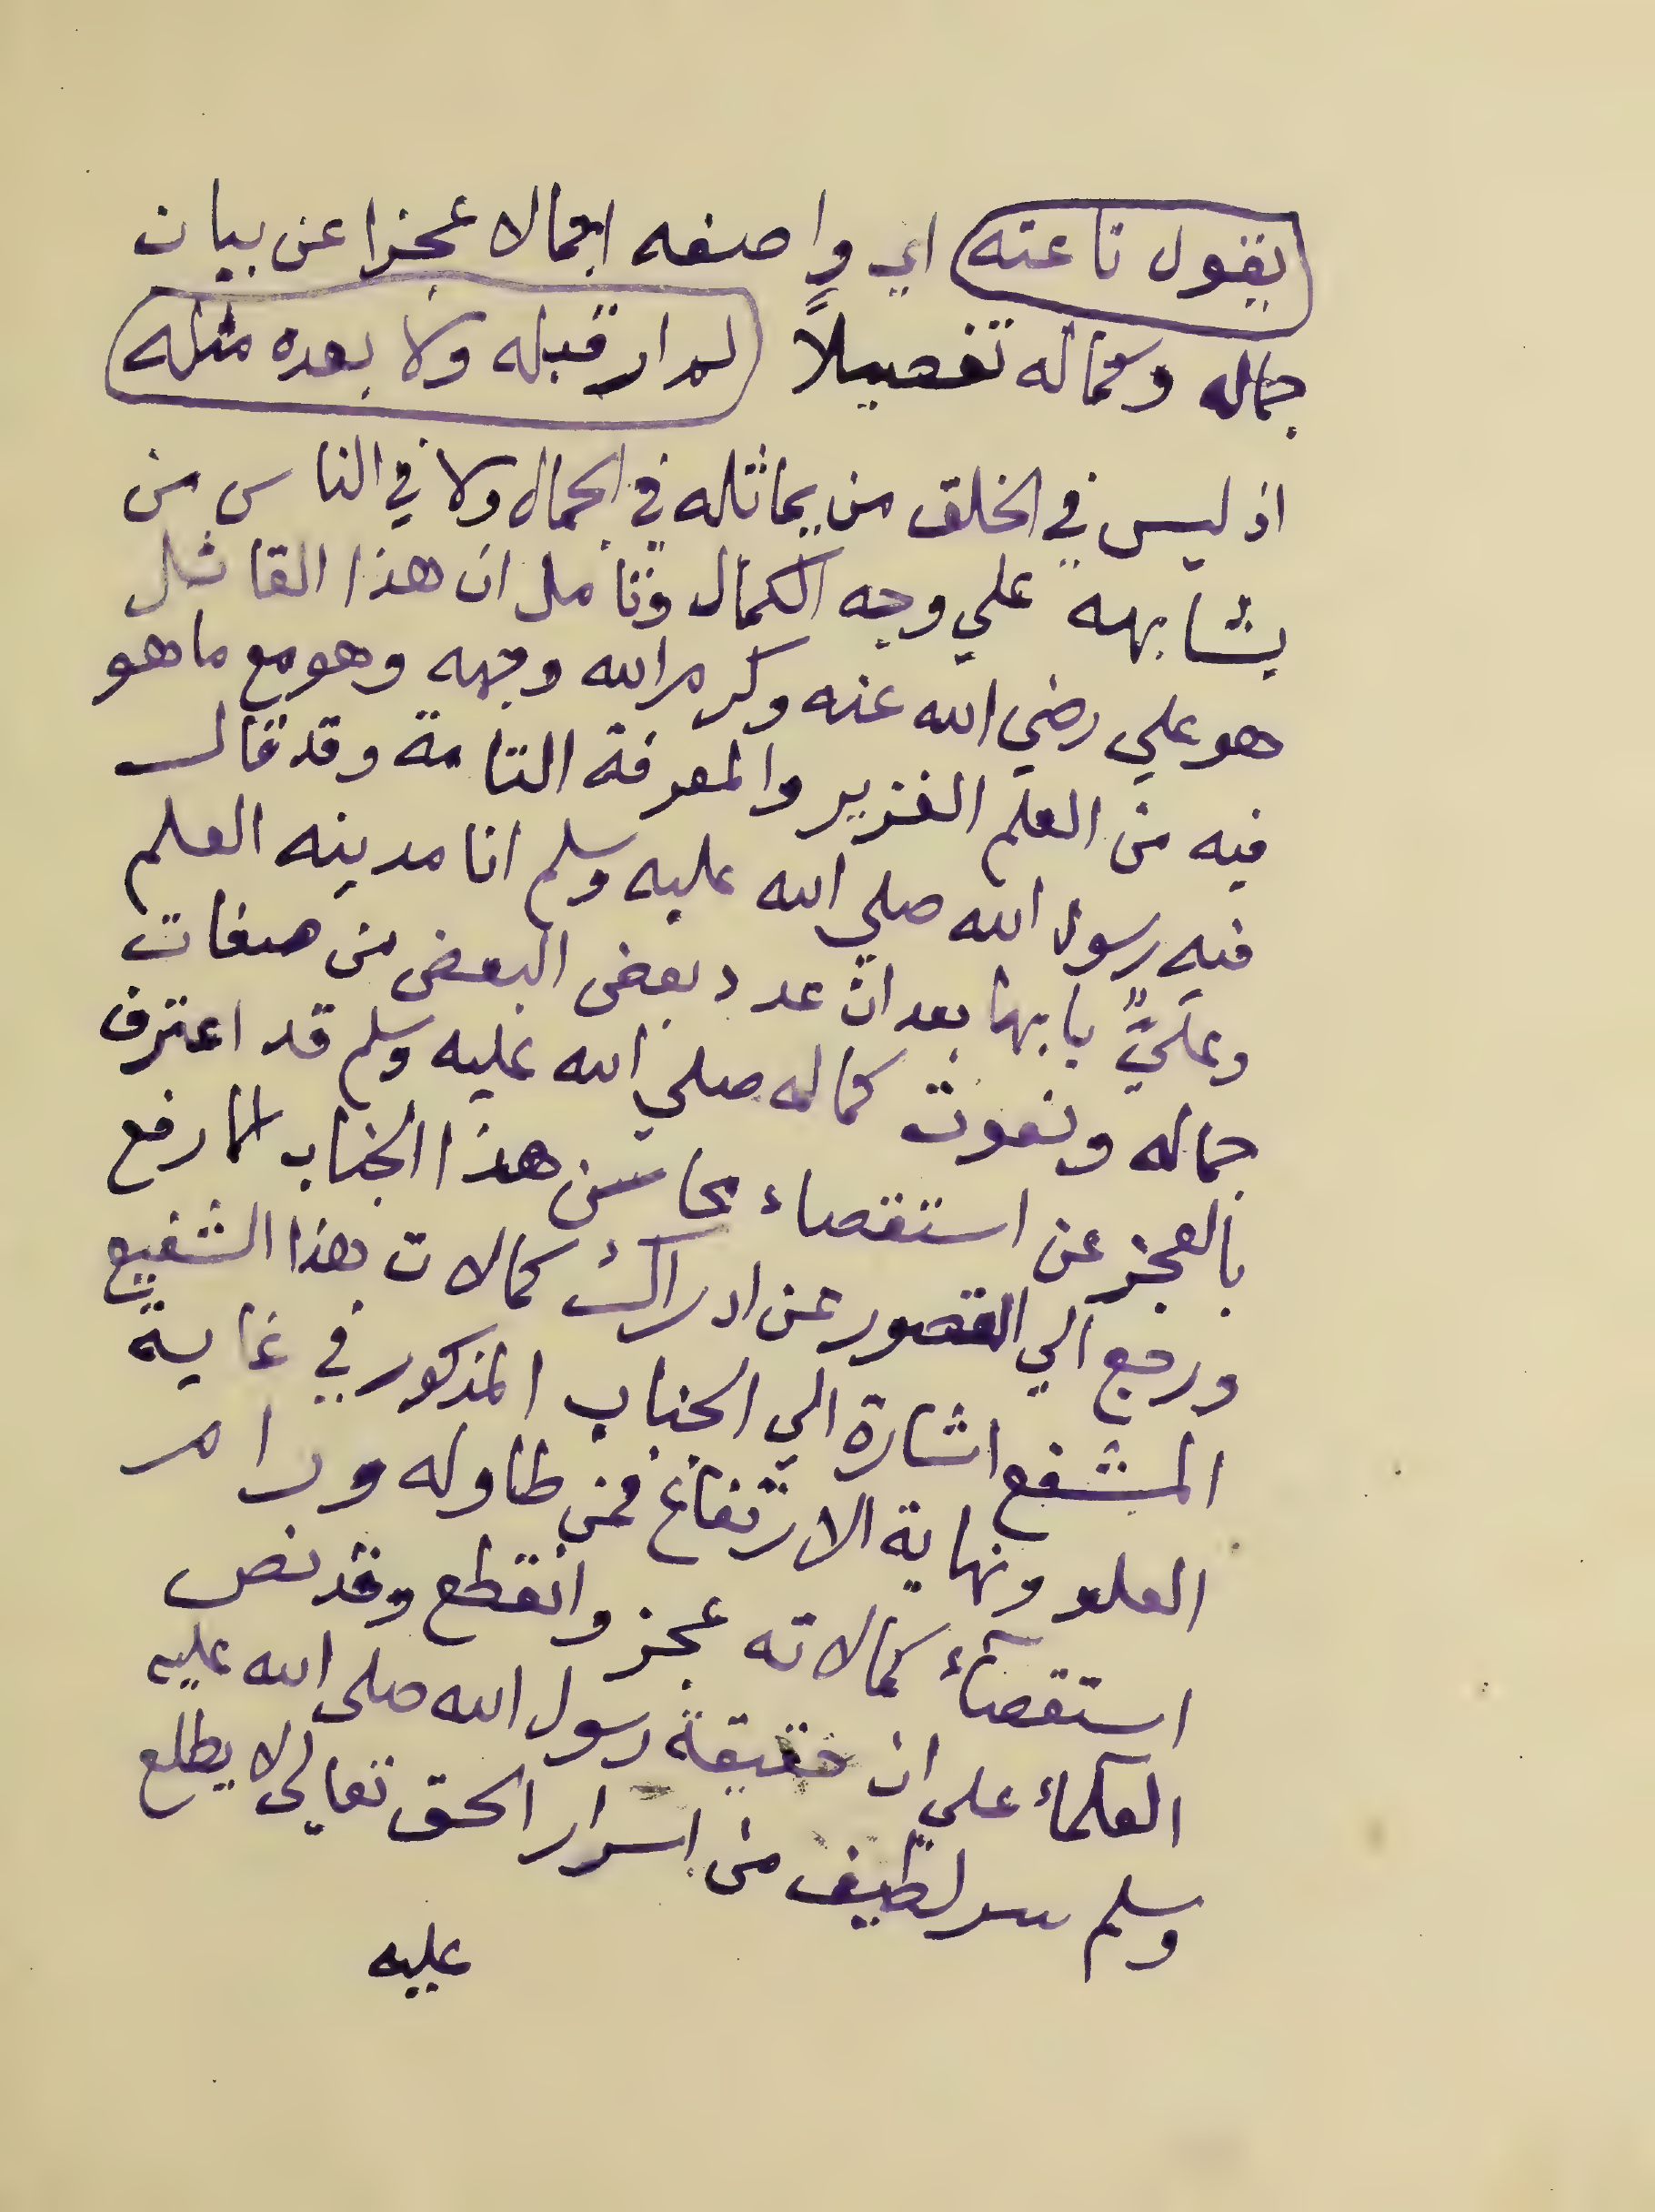 يقول ناعته اي واصفه اجمالا عجزا عن بيان
جماله وكماله تفصيلاً لم ار قبله ولا بعده مثله
اذ ليس في الخلق من يماثله في الجمال ولا في الناس من
يشابهه علي وجه الكمال وتامل ان هذا القائل
هو علي رضي الله عنه وكرم الله وجهه وهو مع ما هو
فيه من العلم الغزير والمعرفة التامة وقد قال
فيه رسول الله صلي الله عليه وسلم انا مدينه العلم
وعليٌّ بابها بعد ان عدد بعض البعض من صفات
جماله ونعوت كماله صلي الله عليه وسلم قد اعترف
بالعجز عن استقصاء محاسن هذا الجناب الارفع
ورجع الي القصور عن ادراك كمالات هذا الشفيع
المشفع اشارة الي الجناب المذكور في غاية
العلو ونهاية الارتفاع فمن طاوله ورام
استقصآء كمالاته عجز وانقطع وقد نص
العلماء علي ان حقيقة رسول الله صلى الله عليه
وسلم سر لطيف من اسرار الحق تعالى لا يطلع
عليه